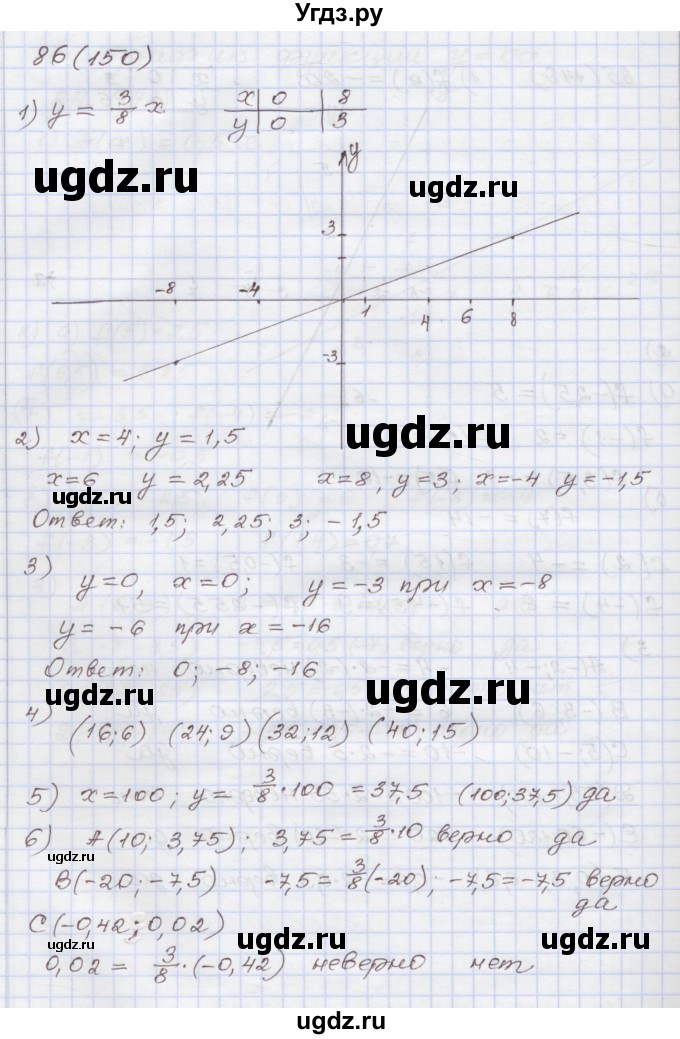 Угдз.ру
86(150)
1) y = 3/8 x
x | 0 | 8
y | 0 | 3
ugdz.ru
ugdz.ru
y
3
-8 -4 1 4 6 8
-3
ugdz.ru
2) x=4; y=1,5
x=6 y=2,25 x=8, y=3; x=-4 y=-1,5
Ответ: 1,5; 2,25; 3; -1,5
ugdz.ru
3)
y=0, x=0; y=-3 при x=-8
y=-6 при x=-16
Ответ: 0; -8; -16
ugdz.ru
ugdz.ru
4) (16;6) (24;9) (32;12) (40;15)
5) x=100; y= 3/8·100 =37,5 (100;37,5) да
6) A(10; 3,75); 3,75= 3/8·10 верно да
ugdz.ru
B(-20;-7,5) -7,5= 3/8(-20); -7,5=-7,5 верно
да
C(-0,42;0,02)
ugdz.ru
ugdz.ru
0,02= 3/8·(-0,42) неверно нет
ugdz.ru